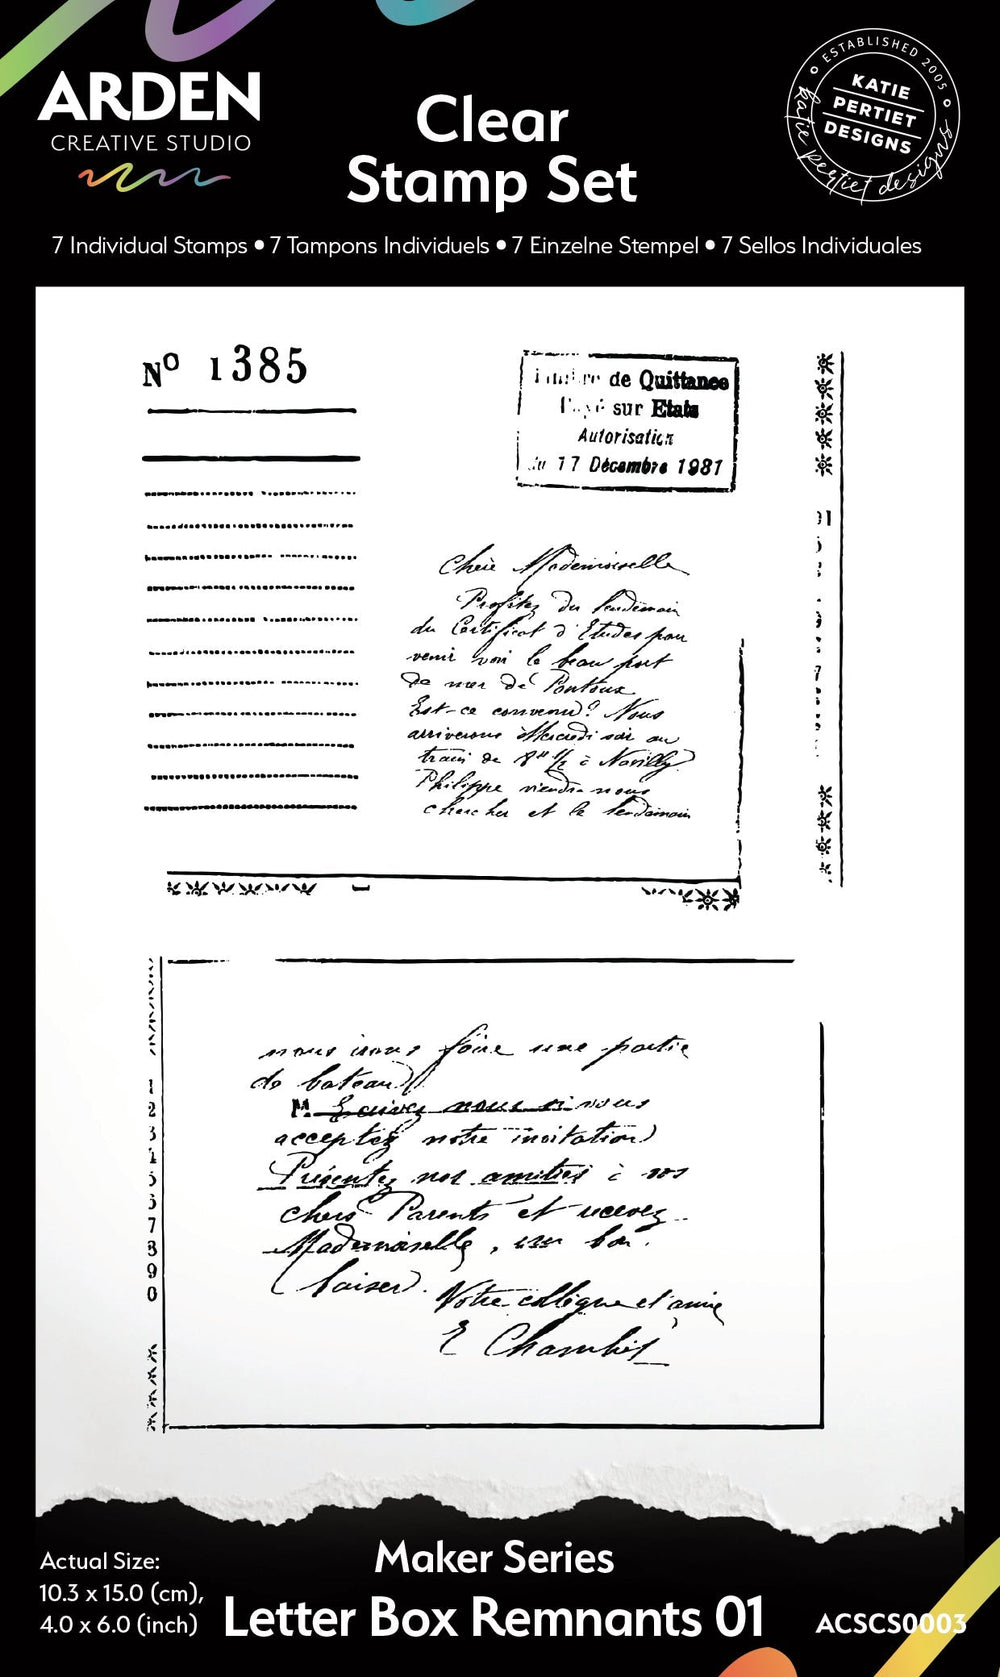 ARDEN
CREATIVE STUDIO
Clear
Stamp Set
ESTABLISHED 2005
KATIE
PERTIET
DESIGNS
katie pertiet designs
7 Individual Stamps • 7 Tampons Individuels • 7 Einzelne Stempel • 7 Sellos Individuales
Nº 1385
de Quittance
sur Etats
Autorisation
du 17 Décembre 1981
Chère Mademoiselle
Profitez du lendemain
du Certificat d'Etudes pour
venir voir le beau port
de mer de Pontoux
Est-ce convenu? Nous
arriverons Mercredi soir au
train de 8h 1/2 à
Philippe viendra nous
chercher et le lendemain
nous irons faire une partie
de bateau
M. Ecrivez nous si vous
acceptez notre invitation
Présentez nos amitiés à vos
chers Parents et recevez
Mademoiselle, un bon
baiser.
Votre collègue et amie
E
1
2
3
4
5
6
7
8
9
0
Actual Size:
10.3 x 15.0 (cm),
4.0 x 6.0 (inch)
Maker Series
Letter Box Remnants 01
ACSCS0003